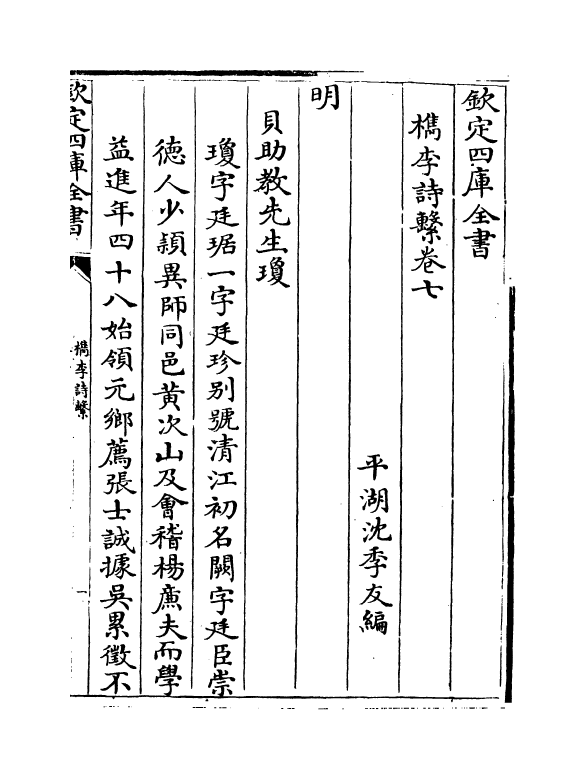 欽定四庫全書
檇李詩繫卷七
平湖沈季友編
明
貝助教先生瓊
瓊字廷琚一字廷珍別號清江初名闕字廷臣崇
徳人少穎異師同邑黄次山及會稽楊㢘夫而學
益進年四十八始領元鄉薦張士誠據吳累徵不
欽定四庫全書
檇李詩繫
一